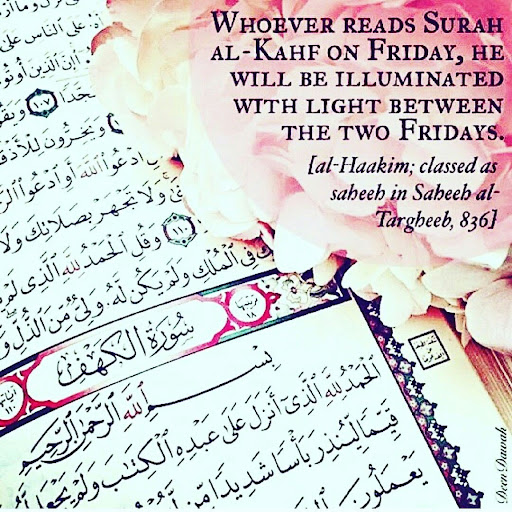 WHOEVER READS SURAH
AL-KAHF ON FRIDAY, HE
WILL BE ILLUMINATED
WITH LIGHT BETWEEN
THE TWO FRIDAYS.
[al-Haakim; classed as
saheeh in Saheeh al-
Targheeb, 836]
عَلَى ٱلنَّاسِ
إِنَّ ٱلَّذِينَ أُوتُوا۟
سُجَّدًا ١٠٧
وَيَخِرُّونَ لِلْأَذْقَا
ٱدْعُوا۟ ٱللَّهَ أَوِ ٱدْعُوا۟
وَلَا تَجْهَرْ بِصَلَاتِكَ وَلَا
وَقُلِ ٱلْحَمْدُ لِلَّهِ ٱلَّذِى لَمْ
فِى ٱلْمُلْكِ وَلَمْ يَكُن لَّهُۥ وَلِىٌّ مِّنَ ٱلذُّلِّ
سُورَةُ الكَهْفِ
بِسْمِ ٱللَّهِ ٱلرَّحْمَٰنِ ٱلرَّحِيمِ
ٱلْحَمْدُ لِلَّهِ ٱلَّذِىٓ أَنزَلَ عَلَىٰ عَبْدِهِ ٱلْكِتَٰبَ وَلَمْ يَجْعَل
قَيِّمًا لِّيُنذِرَ بَأْسًا شَدِيدًا مِّن
يَعْمَلُونَ
Deen Dawah